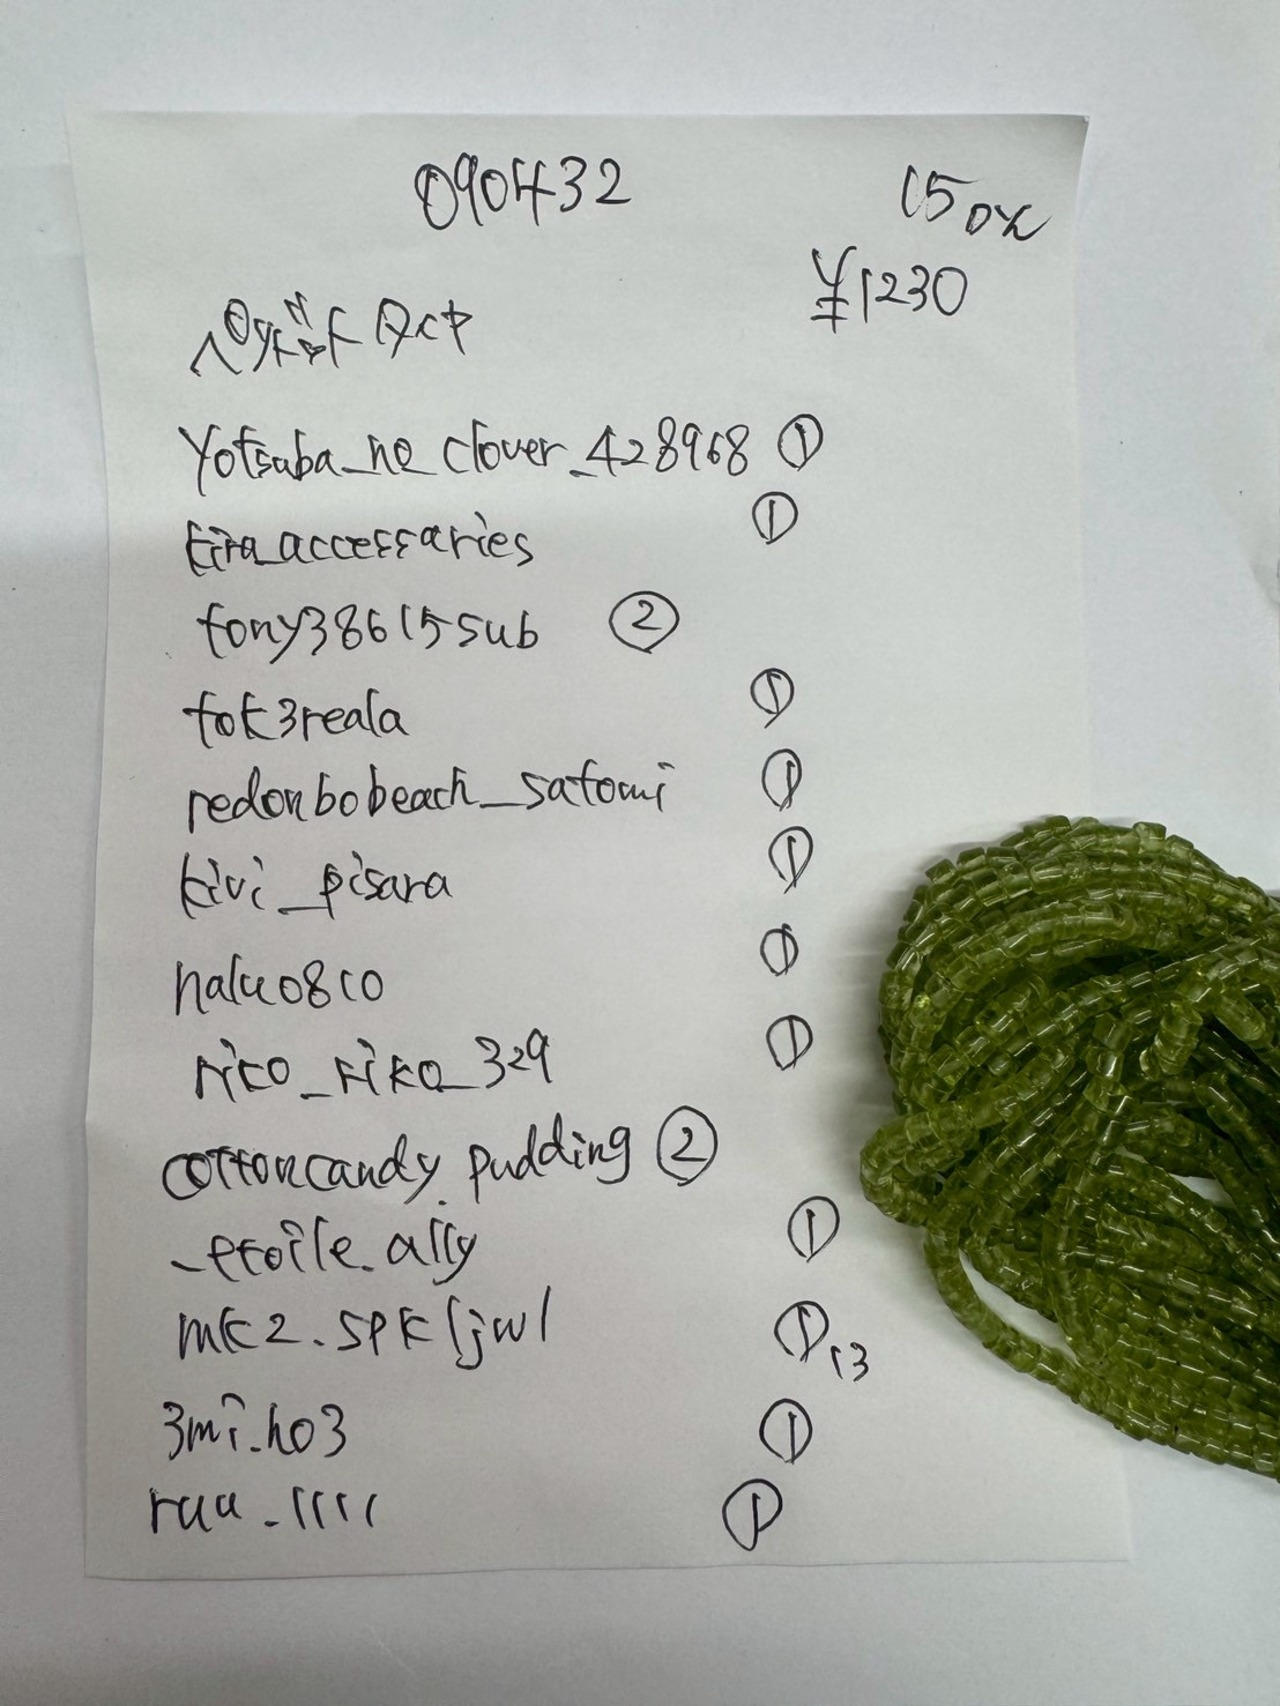 090432
150pc
¥1230
ペリドット タイコ
Yotsuba_no_clover_428968 ①
kira_accessaries ①
tony38615sub ②
tok3reala ①
redonbobeach_satomi ①
kivi_pisara ①
halu0810 ①
riko_riko_329 ①
cottoncandy.pudding ②
_etoile.ally ①
mk2.spkljwl ① 13
3mi.ho3 ①
ruu_1111 ①